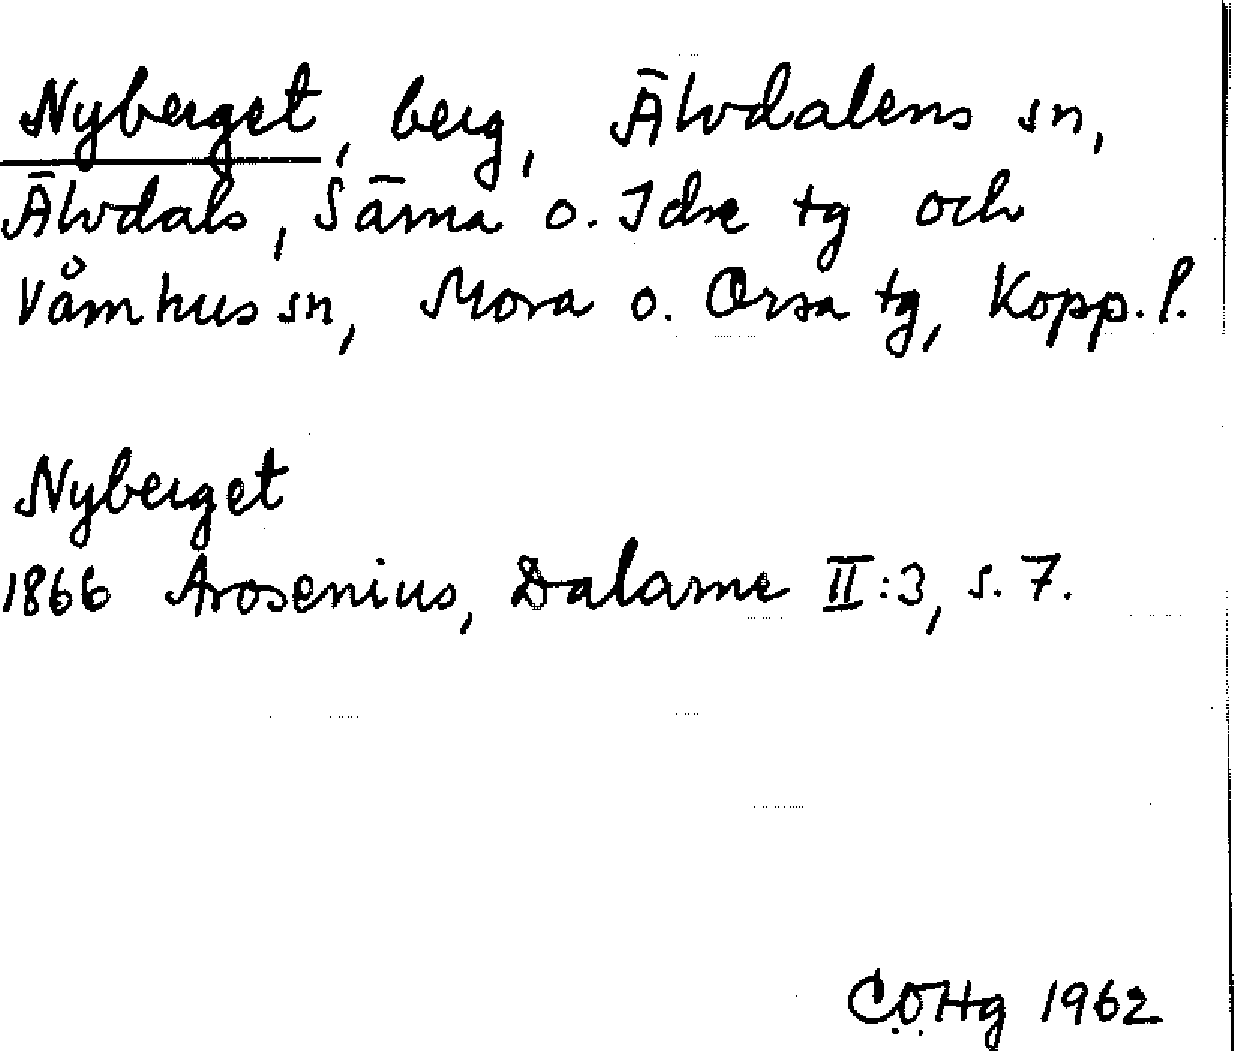 Nyberget, berg, Älvdalens sn,
Älvdals, Särna o. Idre tg och
Våmhus sn, Mora o. Orsa tg, Kopp. l.
Nyberget
1866 Arosenius, Dalarne II:3, s. 7.
C.O.Hg 1962